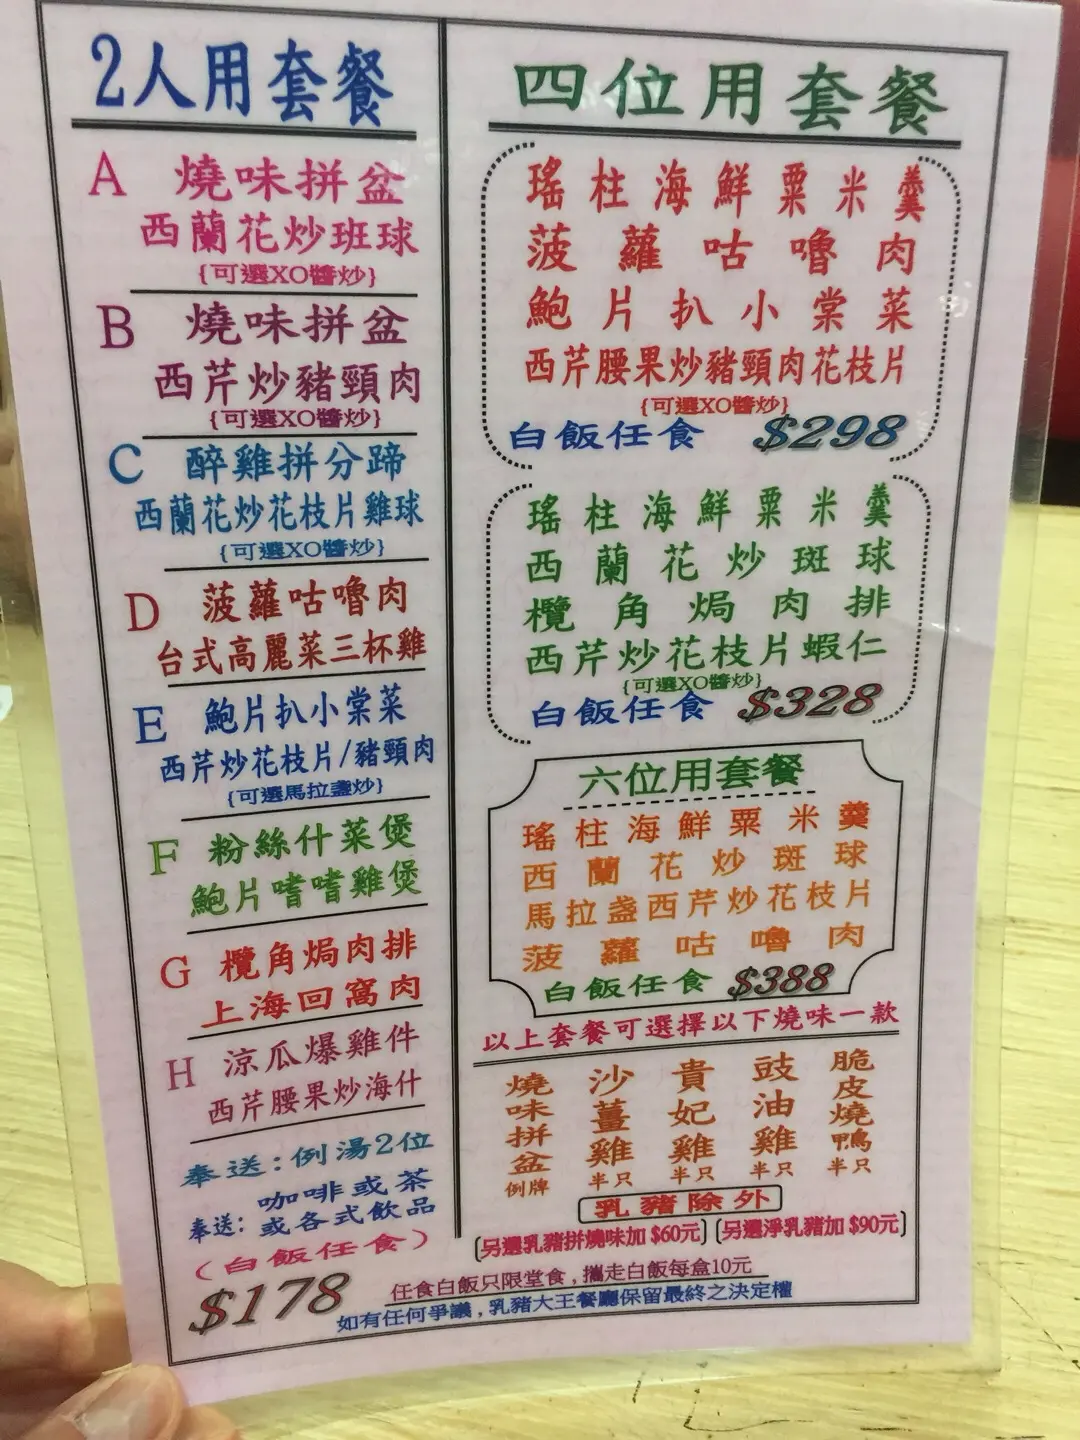 2人用套餐
A 燒味拼盆
西蘭花炒班球
{可選XO醬炒}
B 燒味拼盆
西芹炒豬頸肉
{可選XO醬炒}
C 醉雞拼分蹄
西蘭花炒花枝片雞球
{可選XO醬炒}
D 菠蘿咕嚕肉
台式高麗菜三杯雞
E 鮑片扒小棠菜
西芹炒花枝片/豬頸肉
{可選馬拉盞炒}
F 粉絲什菜煲
鮑片嗜嗜雞煲
G 欖角焗肉排
上海回窩肉
H 涼瓜爆雞件
西芹腰果炒海什
奉送:例湯2位
奉送:咖啡或茶
或各式飲品
(白飯任食)
$178
四位用套餐
瑤柱海鮮粟米羹
菠蘿咕嚕肉
鮑片扒小棠菜
西芹腰果炒豬頸肉花枝片
{可選XO醬炒}
白飯任食 $298
瑤柱海鮮粟米羹
西蘭花炒斑球
欖角焗肉排
西芹炒花枝片蝦仁
{可選XO醬炒}
白飯任食 $328
六位用套餐
瑤柱海鮮粟米羹
西蘭花炒斑球
馬拉盞西芹炒花枝片
菠蘿咕嚕肉
白飯任食 $388
以上套餐可選擇以下燒味一款
燒味拼盆例牌
沙薑雞半只
貴妃雞半只
豉油雞半只
脆皮燒鴨半只
乳豬除外
[另選乳豬拼燒味加 $60元] [另選淨乳豬加 $90元]
任食白飯只限堂食,攜走白飯每盒10元
如有任何爭議,乳豬大王餐廳保留最終之決定權